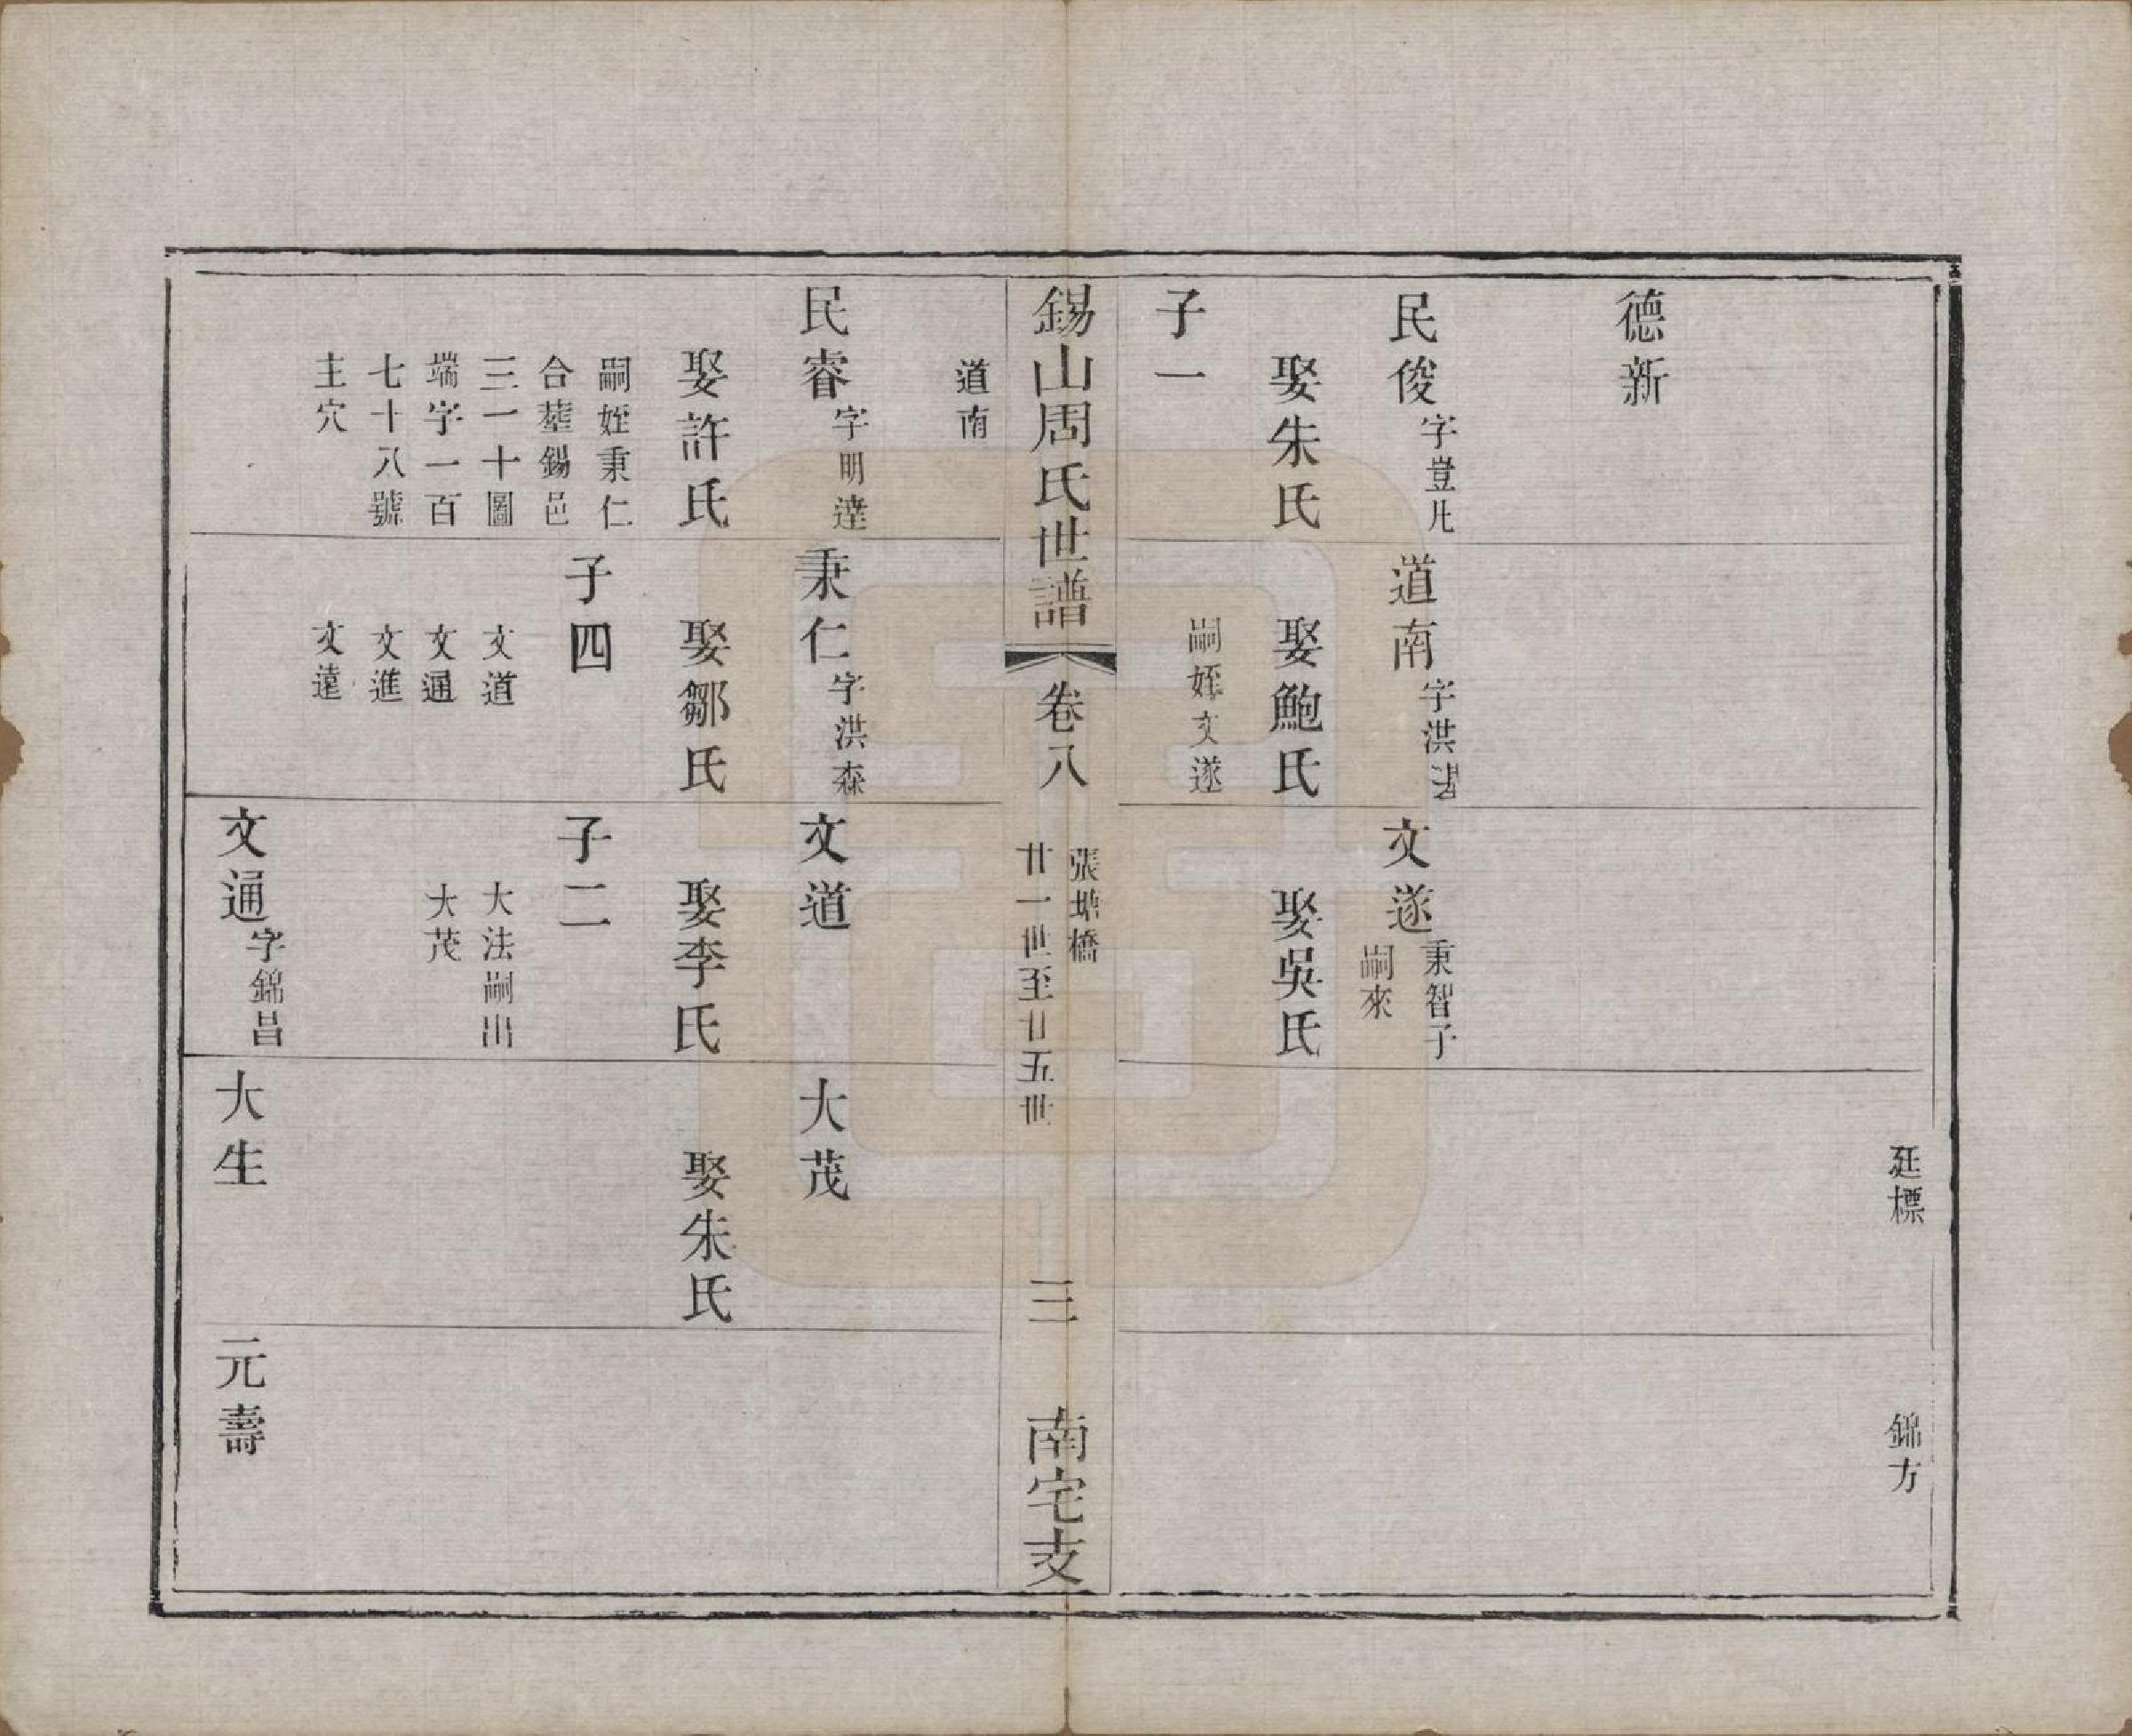 廷標
錦方
德新
民俊
字豈凡
娶朱氏
子一
道南
字洪
娶鮑氏
嗣姪文遂
文遂
秉智子
嗣來
娶吳氏
錫山周氏世譜
卷八
張塘橋
廿一世至廿五世
三
南宅支
道南
民睿
字明達
娶許氏
嗣姪秉仁
合塟錫邑
三一十圖
端字一百
七十八號
主穴
秉仁
字洪森
娶鄒氏
子四
文道
文通
文進
文遠
文道
娶李氏
子二
大法嗣出
大茂
文通
字錦昌
大茂
娶朱氏
大生
元壽